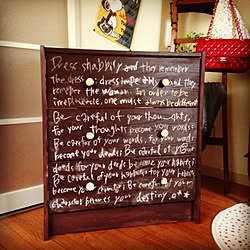 Dress shabbily and they remember
the dress dress impeccably and they
remember the woman. In order to be
irreplaceable one must always be different
Be careful of your thoughts,
for your thoughts become your words.
Be careful of your words, for your words
become your deeds. Be careful of your
deeds, for your deeds become your habits.
Be careful of your habits, for your habits
become your character. Be careful of your
character becomes your destiny.